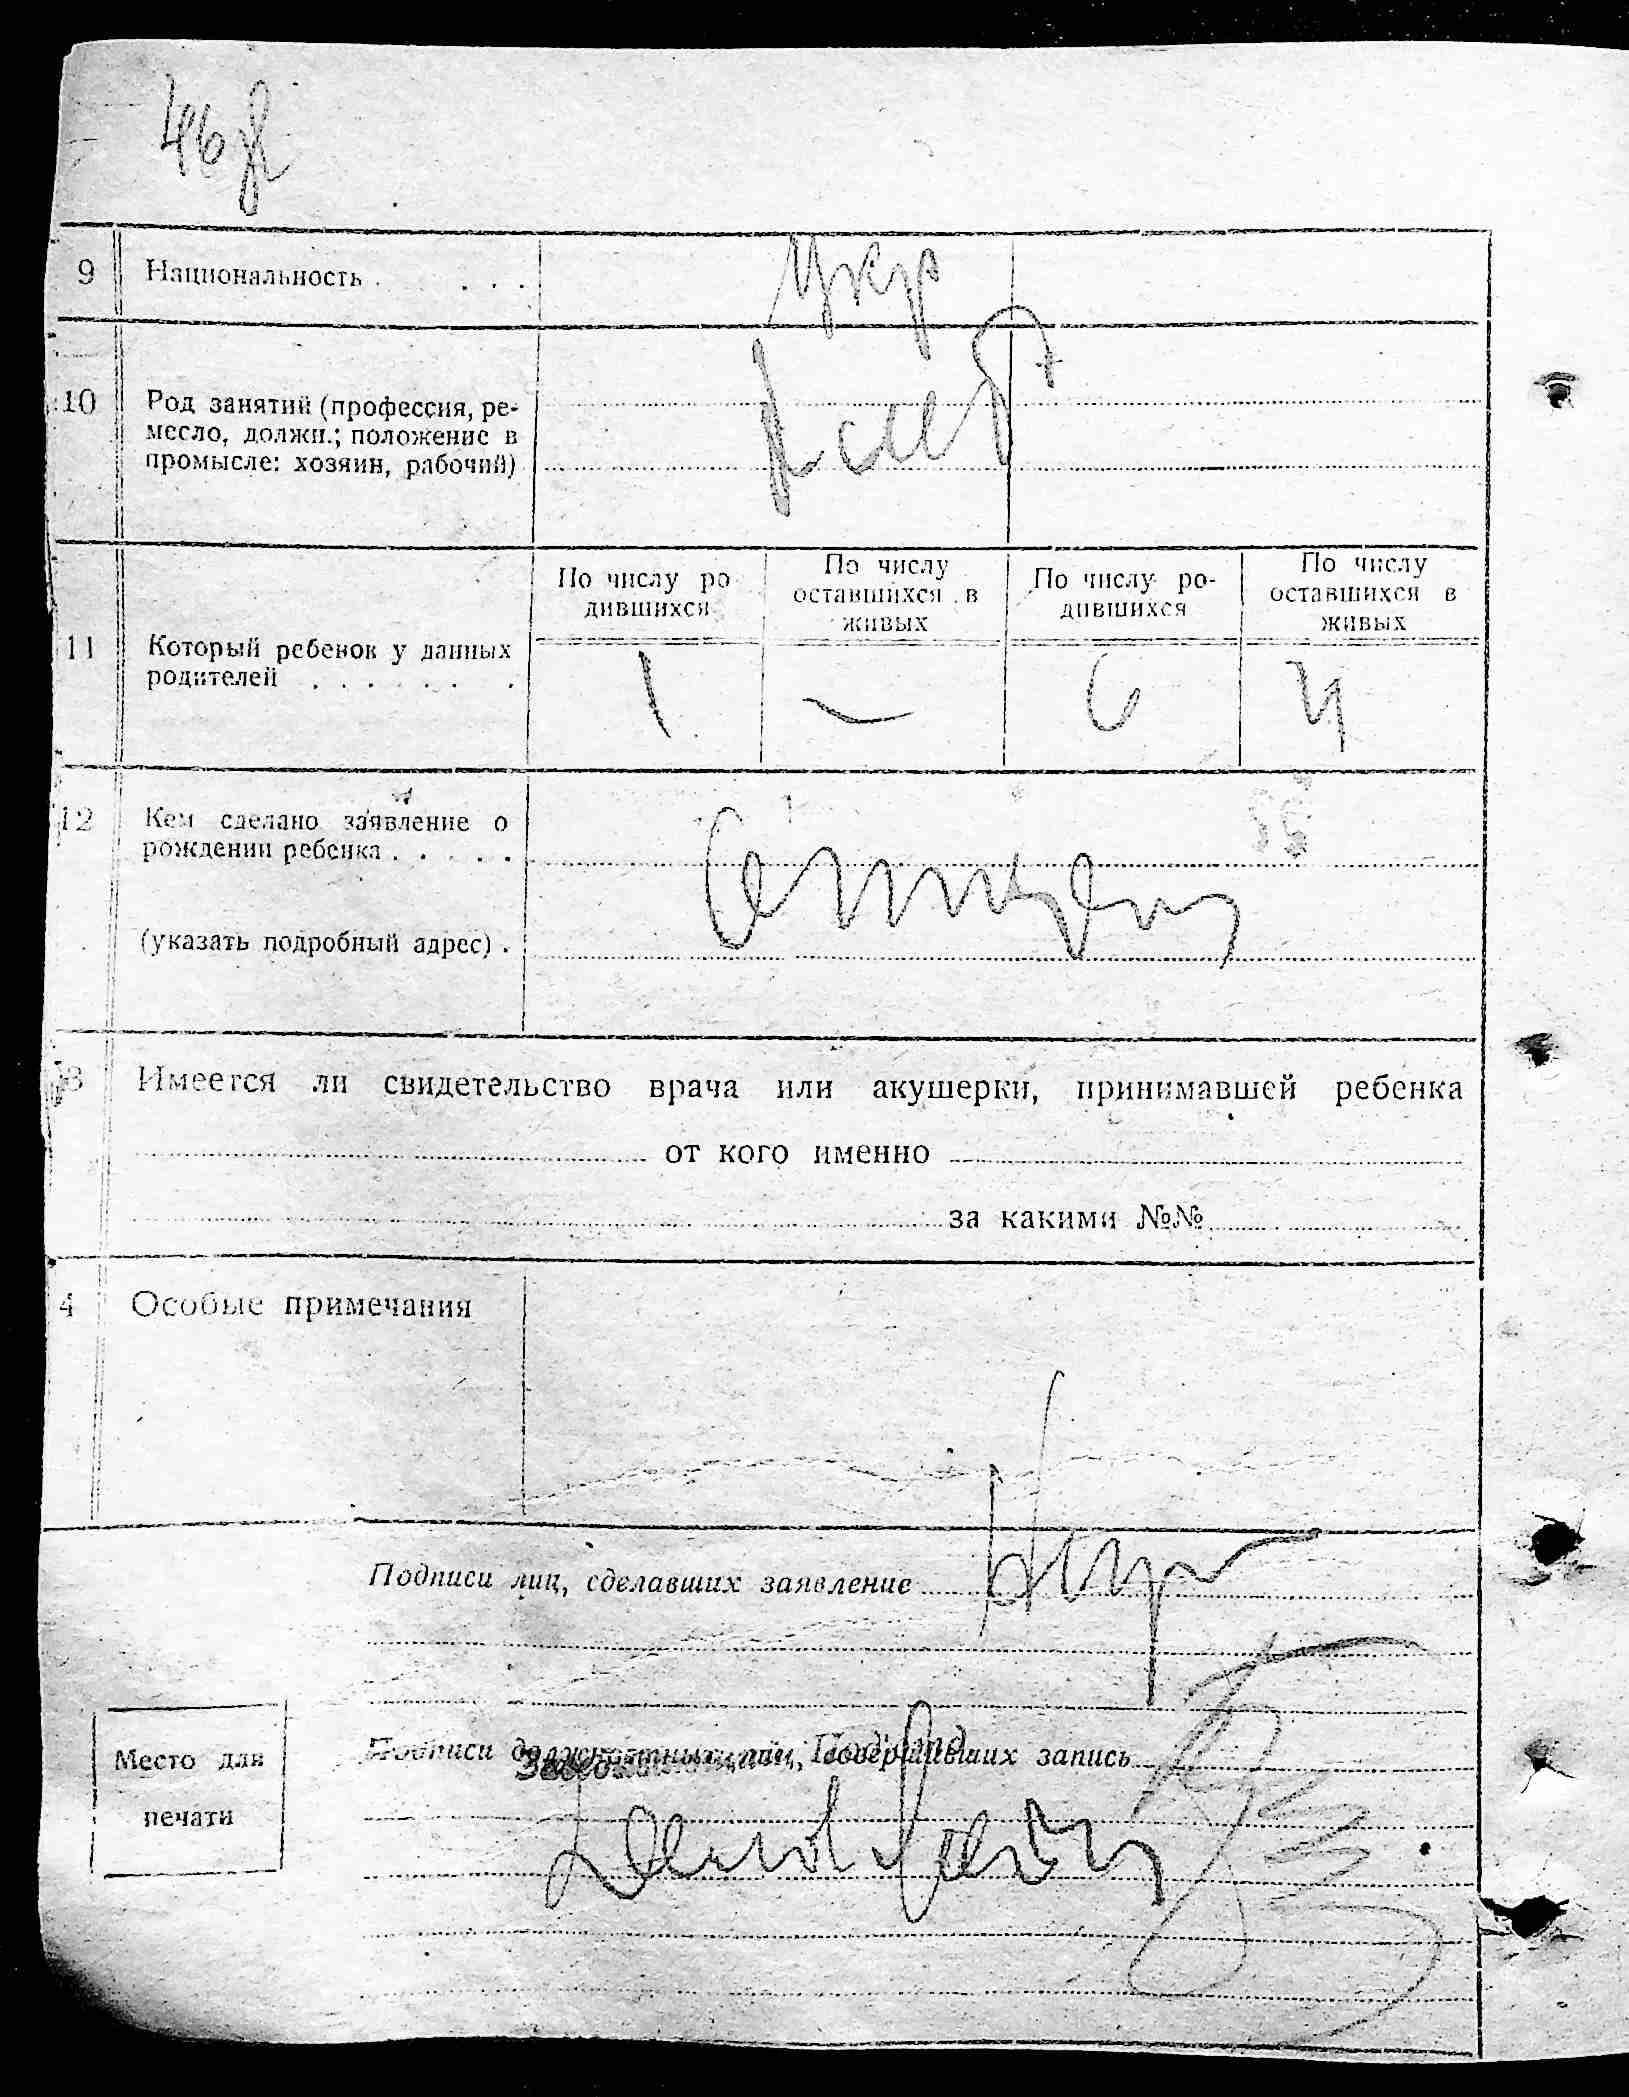 9 Национальность . . . . укр
10 Род занятий (профессия, ре-
месло, должн.; положение в
промысле: хозяин, рабочий)
По числу ро
дившихся
По числу
оставшихся в
живых
По числу ро-
дившихся
По числу
оставшихся в
живых
11 Который ребенок у данных
родителей . . . . . . . 1 — 6 4
12 Кем сделано заявление о
рождении ребенка . . . . .
(указать подробный адрес) .
3 Имеется ли свидетельство врача или акушерки, принимавшей ребенка
от кого именно
за какими №№
4 Особые примечания
Подписи лиц, сделавших заявление
Подписи должностных лиц, совершивших запись
Место для
печати